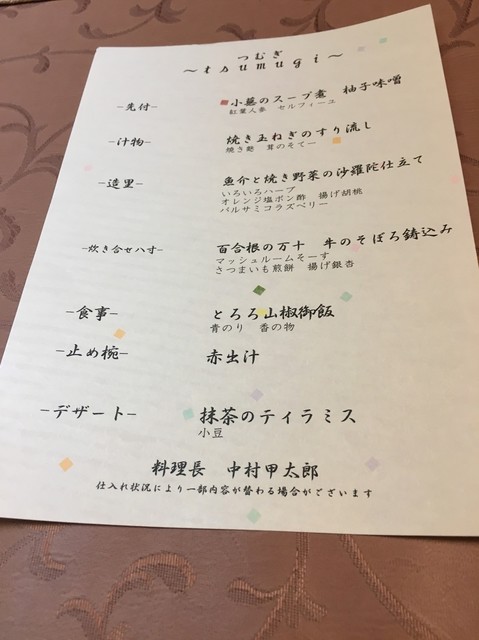 つむぎ
～tsumugi～
-先付- 小蕪のスープ煮 柚子味噌
紅葉人参 セルフィーユ
-汁物- 焼き玉ねぎのすり流し
焼き麩 茸のそてー
-造里- 魚介と焼き野菜の沙羅陀仕立て
いろいろハーブ
オレンジ塩ポン酢 揚げ胡桃
バルサミコラズベリー
-炊き合セハす- 百合根の万十 牛のそぼろ鋳込み
マッシュルームそーす
さつまいも煎餅 揚げ銀杏
-食事- とろろ山椒御飯
青のり 香の物
-止め椀- 赤出汁
-デザート- 抹茶のティラミス
小豆
料理長 中村甲太郎
仕入れ状況により一部内容が替わる場合がございます